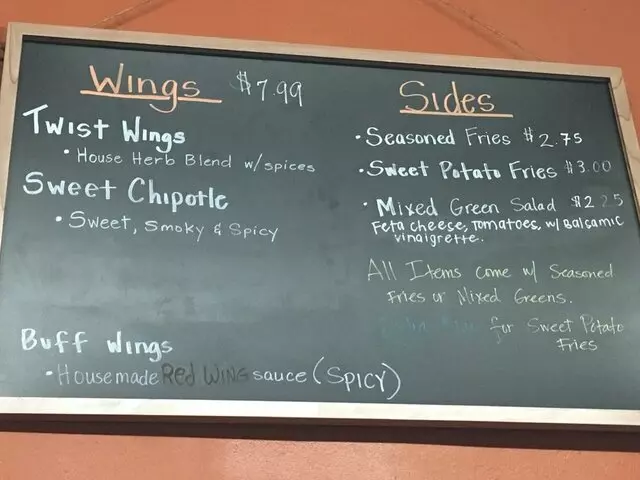 Wings $7.99
Twist Wings
• House Herb Blend w/spices
Sweet Chipotle
• Sweet, Smoky & Spicy
Buff Wings
• Housemade Red Wing sauce (Spicy)
Sides
• Seasoned Fries $2.75
• Sweet Potato Fries $3.00
• Mixed Green Salad $2.25
Feta cheese, Tomatoes, w/ Balsamic
vinaigrette.
All Items come w/ Seasoned
Fries or Mixed Greens.
for Sweet Potato
Fries